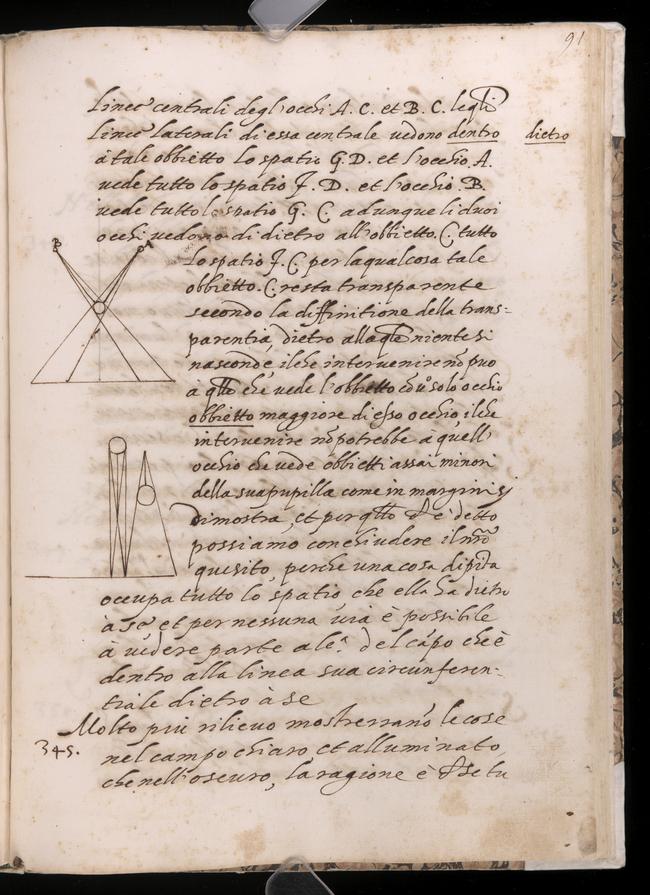 91
linee centrali degl'occhi A. C. et B. C. le qli
linee laterali di essa centrale vedono dentro dietro
à tale obbietto lo spatio G. D. et l'occhio. A.
vede tutto lo spatio F. D. et l'occhio. B.
vede tutto lo spatio G. C. adunque li duoi
occhi vedono di dietro all'obbietto. C. tutto
B A
lo spatio F. C. per la qual cosa tale
obbietto. C. resta transparente
secondo la diffinitione della trans=
parentia, dietro alla qle niente si
nasconde, il che intervenire nõ puo
à qllo che vede l'obbietto cõ un solo occhio
obbietto maggiore di esso occhio il che
intervenire nõ potrebbe a quell'
occhio che vede obbietti assai minori
della sua pupilla come in margini si
dimostra, et per qllo è detto
possiamo conchiudere il nrõ
quesito, perche una cosa dipita
occupa tutto lo spatio che ella ha dietro
à se et per nessuna via è possibile
à vedere parte ale.ª del cãpo che è
dentro alla linea sua circunferen-
tiale dietro à se
Molto piu rilievo mostrerranno le cose
345.
nel campo chiaro et alluminato,
che nell'oscuro, la ragione è che se tu